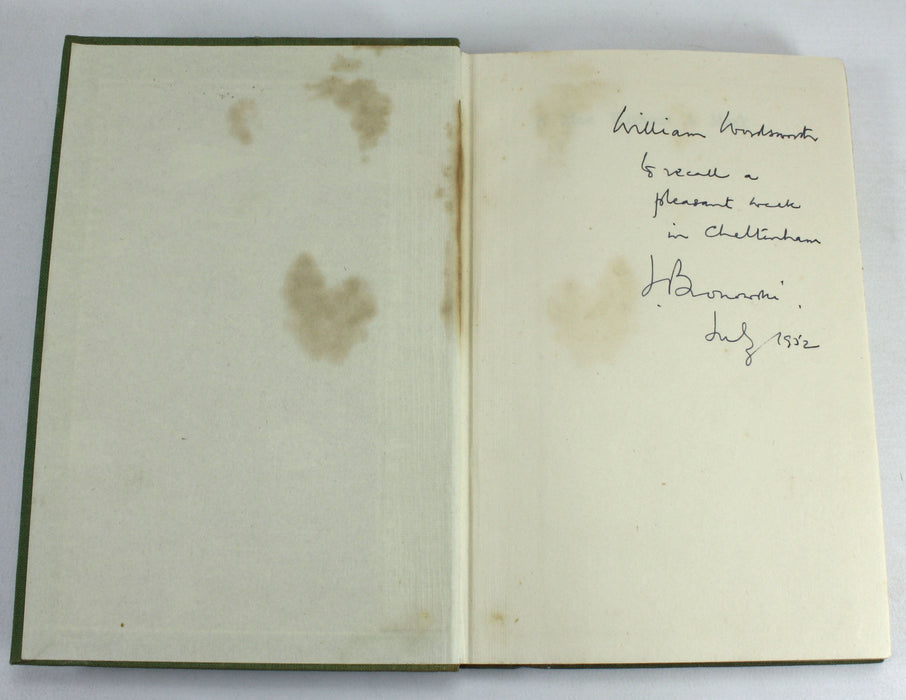 William Wordsworth
to recall a
pleasant week
in Cheltenham
J. Bronowski.
July 1952